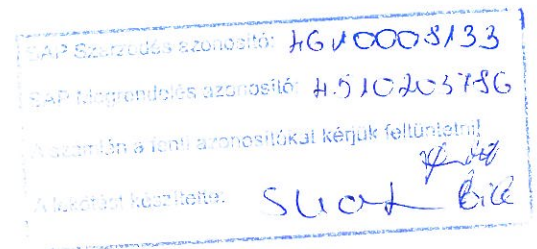 SAP Szerződés azonosító: 4610009133
SAP Megrendelés azonosító: 4510203786
A számlán a fenti azonosítókat kérjük feltüntetni!
A lekötést készítette: